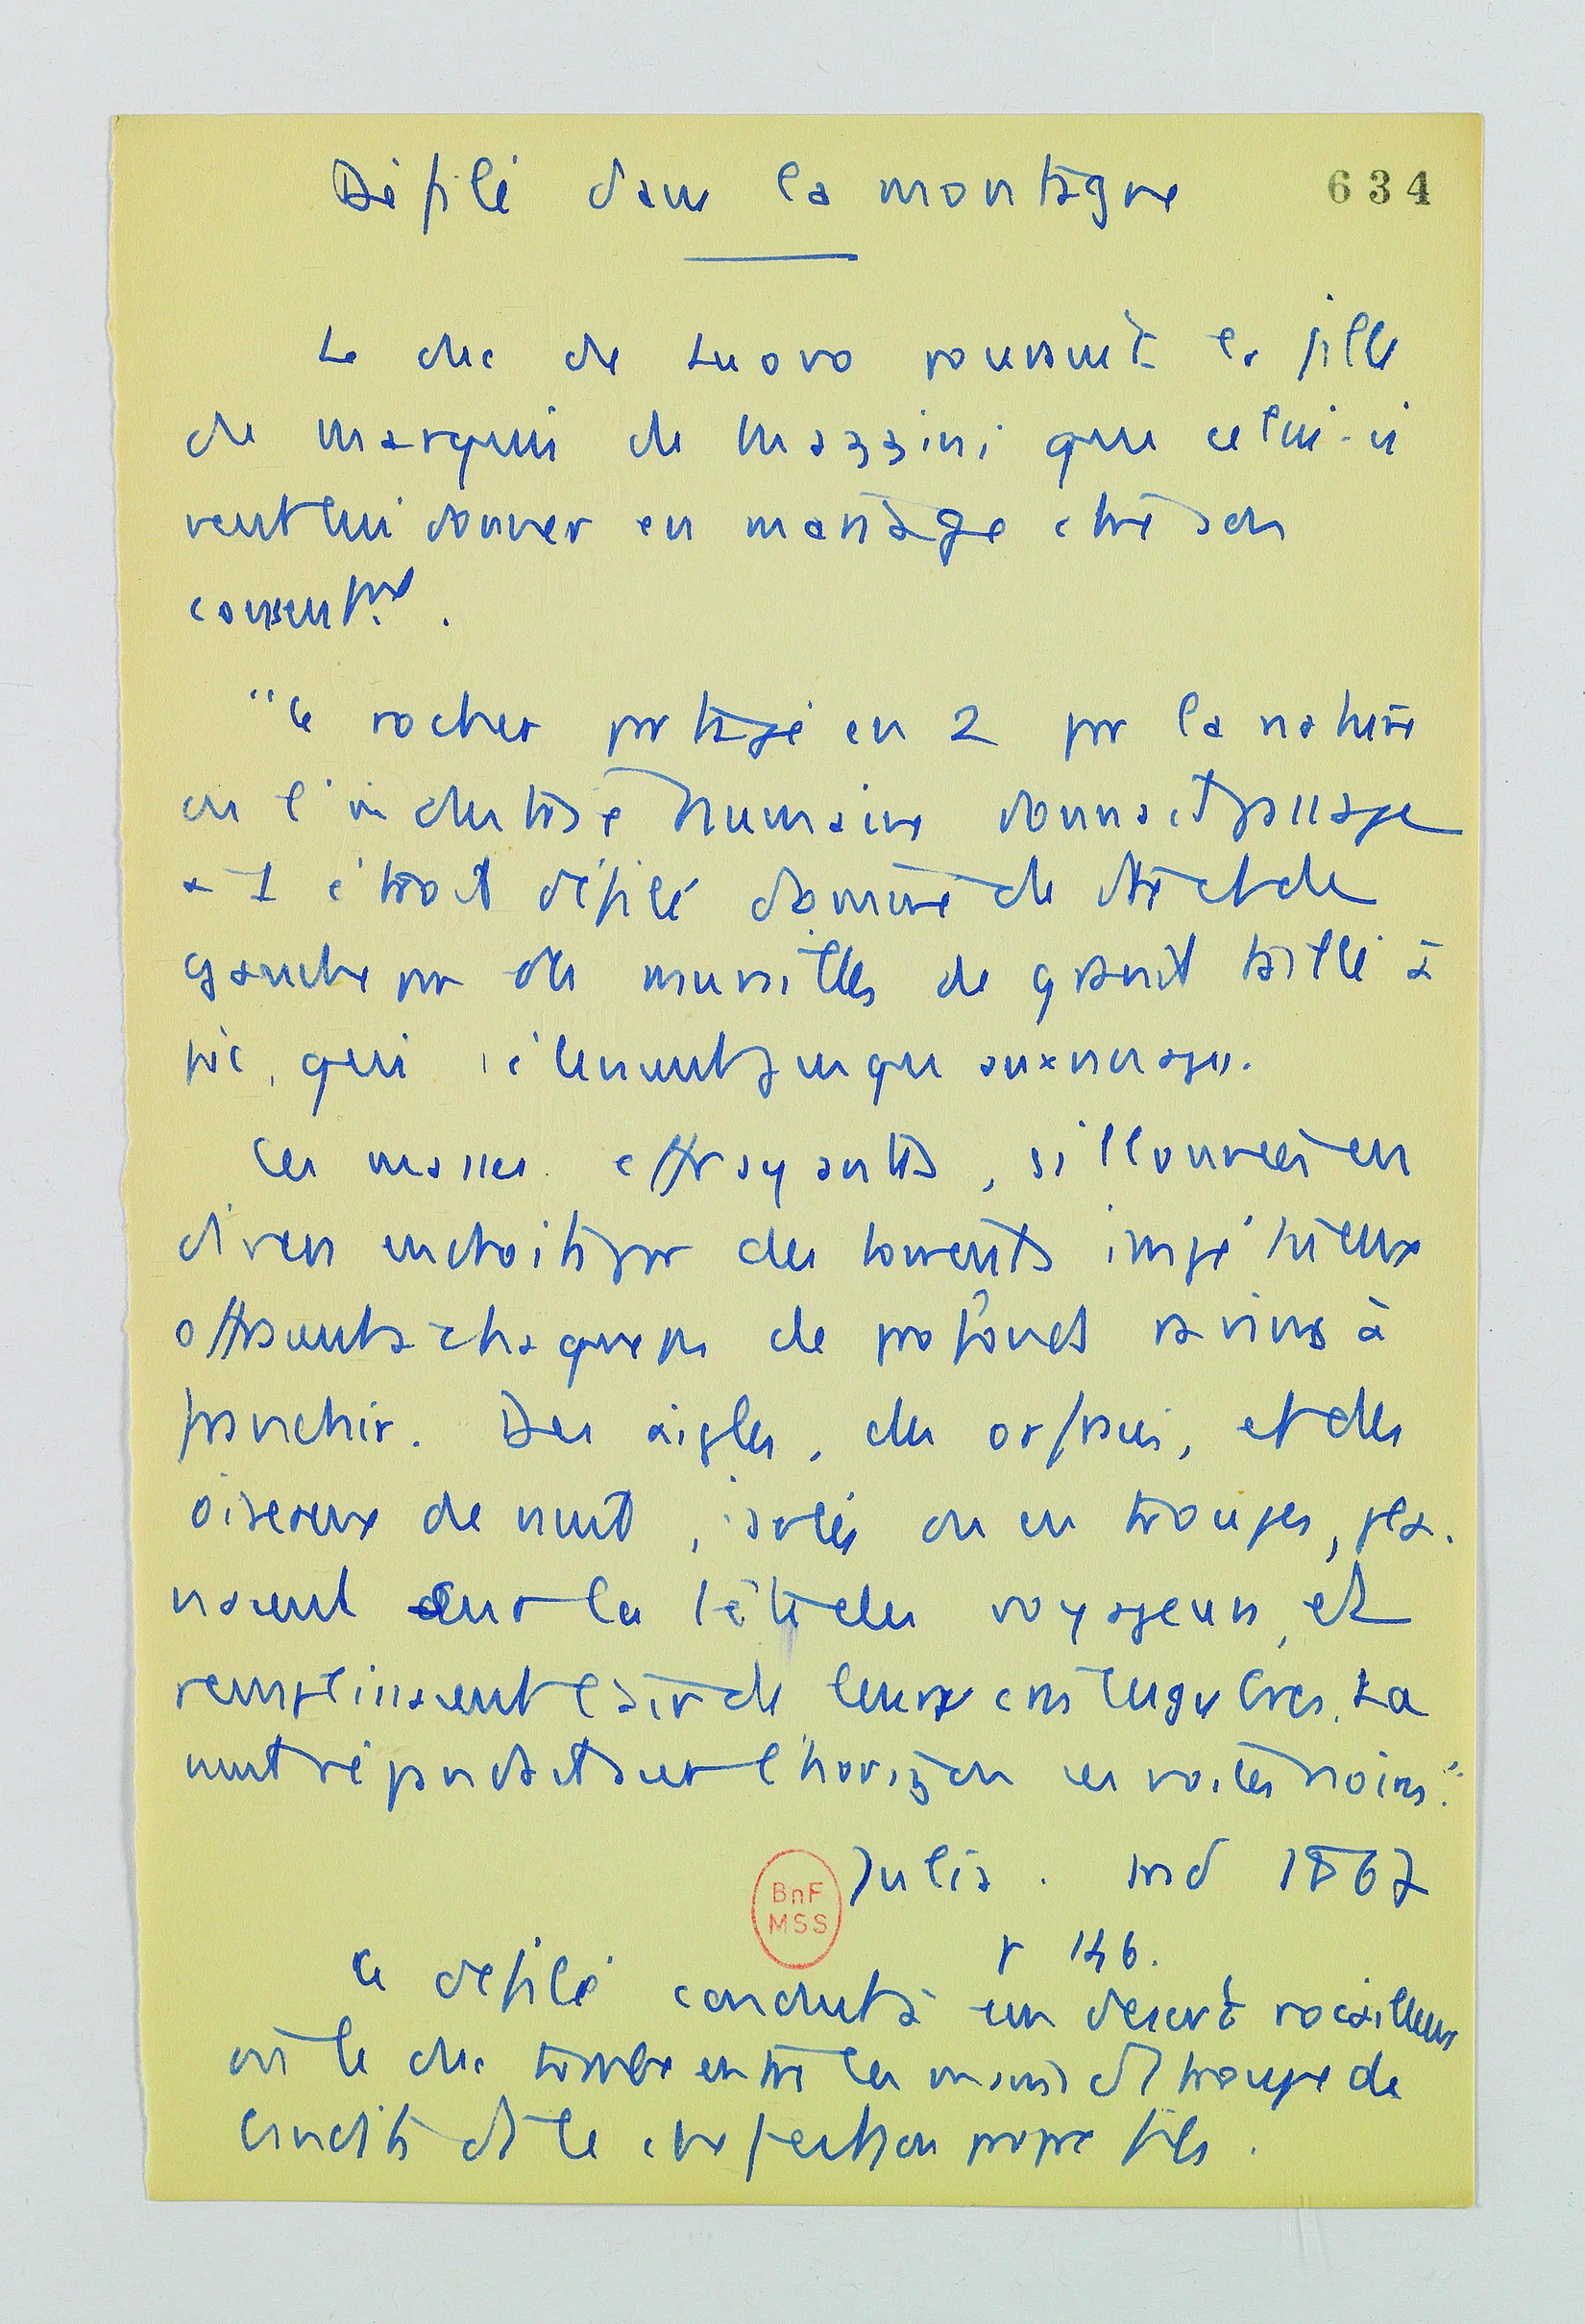 Défilé dans la montagne
634
Le duc de Luovo poursuit la fille
du marquis de Mazzini que celui-ci
veut lui donner en mariage ctre son
consentmt.
"Le rocher partagé en 2 par la nature
ou l'industrie humaine donnait passage
à 1 étroit défilé dominé de dte et de
gauche par des murailles de granit taillé à
pic, qui s'élevaient jusqu'aux nuages.
Ces masses effrayantes, sillonnées en
divers endroits par des torrents impétueux
offraient à chaque pas de profonds ravins à
franchir. Des aigles, des orfraies, et des
oiseaux de nuit, isolés ou en troupes, pla-
naient sur la tête des voyageurs, et
remplissaient l'air de leurs cris lugubres. La
nuit répandait sur l'horizon ses voiles noirs."
Julia. trad 1867
p 146.
Ce défilé conduit à un désert rocailleux
où le duc tombe entre les mains d'1 troupe de
bandits dt le chef est son propre fils.
BnF
MSS